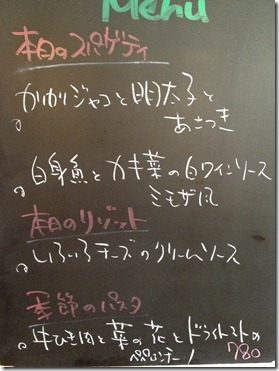 Menu
本日のスパゲティ
かりかりジャコと明太子と
あさつき
白身魚とカキ菜の白ワインソース
ミモザ風
本日のリゾット
いろいろチーズのクリームソース
季節のパスタ
牛ひき肉と菜の花とドライトマトの
ペペロンチーノ
780